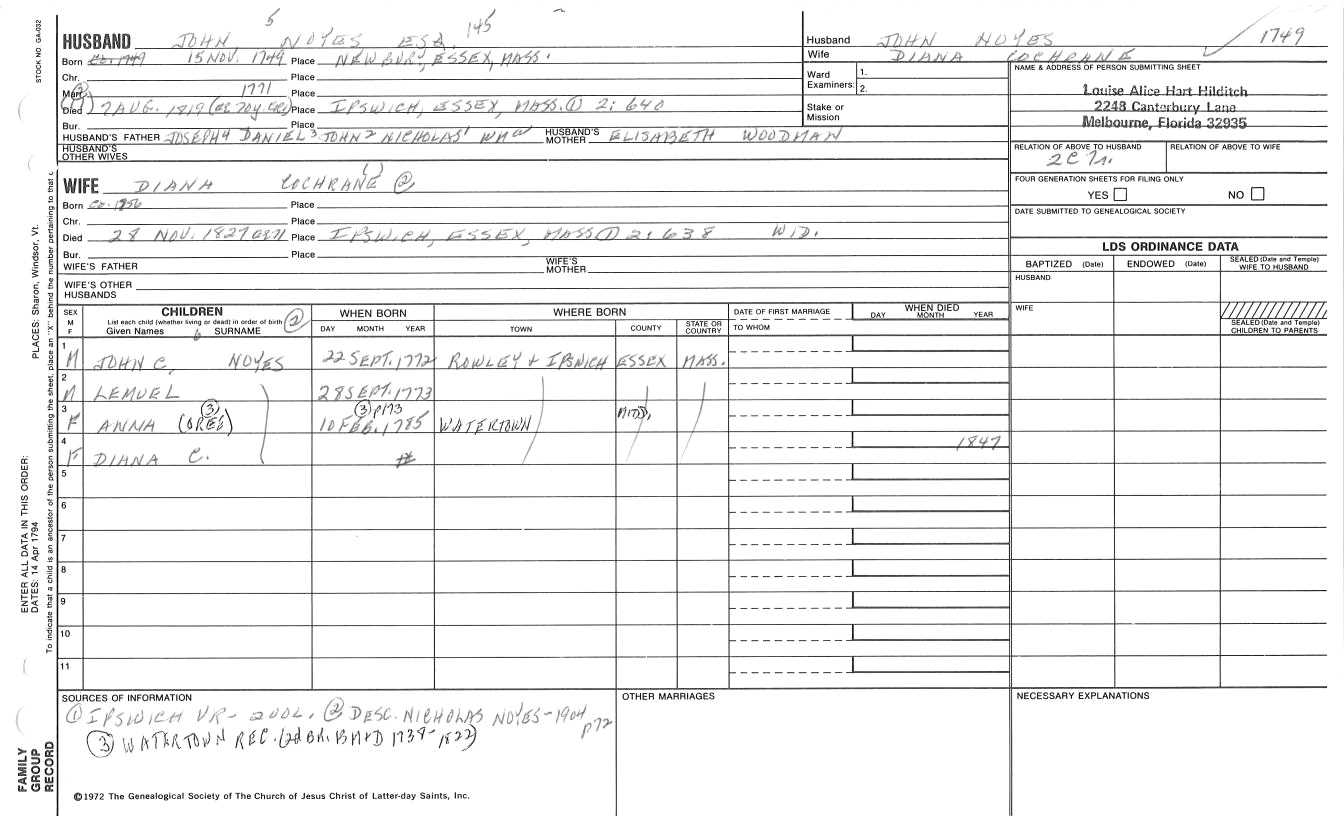 5
145
HUSBAND JOHN NOYES ESQ.
Born Ca. 1749 15 NOV. 1749 Place NEWBURY, ESSEX, MASS.
Chr. Place
Marr. 1771 Place
Died 7 AUG. 1819 Place IPSWICH, ESSEX, MASS. ① 2:640
Bur. Place
HUSBAND'S FATHER JOSEPH 4 DANIEL 3 JOHN 2 NICHOLAS 1 WM HUSBAND'S MOTHER ELISABETH WOODMAN
HUSBAND'S OTHER WIVES
WIFE DIANA COCHRANE ②
Born Place
Chr. Place
Died 28 NOV. 1827 Place IPSWICH, ESSEX, MASS ① 2:638 WID.
Bur. Place
WIFE'S FATHER WIFE'S MOTHER
WIFE'S OTHER HUSBANDS
Husband JOHN NOYES 1749
Wife DIANA COCHRANE
Ward Examiners: 1. 2.
Stake or Mission
NAME & ADDRESS OF PERSON SUBMITTING SHEET
Louise Alice Hart Hilditch
2248 Canterbury Lane
Melbourne, Florida 32935
RELATION OF ABOVE TO HUSBAND RELATION OF ABOVE TO WIFE
FOUR GENERATION SHEETS FOR FILING ONLY
YES NO
DATE SUBMITTED TO GENEALOGICAL SOCIETY
LDS ORDINANCE DATA
BAPTIZED (Date) ENDOWED (Date) SEALED (Date and Temple) WIFE TO HUSBAND
HUSBAND
WIFE
SEALED (Date and Temple) CHILDREN TO PARENTS
SEX M F CHILDREN WHEN BORN WHERE BORN DATE OF FIRST MARRIAGE WHEN DIED
List each child (whether living or dead) in order of birth ②
Given Names 6 SURNAME DAY MONTH YEAR TOWN COUNTY STATE OR COUNTRY TO WHOM DAY MONTH YEAR
1 M JOHN C. NOYES 22 SEPT. 1772 ROWLEY + IPSWICH ESSEX MASS.
2 M LEMUEL 28 SEPT. 1773
3 F ANNA ③ 10 FEB. 1785 ③ P173 WATERTOWN MIDD.
4 F DIANA C. 1847
5
6
7
8
9
10
11
SOURCES OF INFORMATION
① IPSWICH VR- 2VOL. ② DESC. NICHOLAS NOYES-1904 P72
③ WATERTOWN REC. (2d BR. BM+D 1738-1822)
OTHER MARRIAGES
NECESSARY EXPLANATIONS
©1972 The Genealogical Society of The Church of Jesus Christ of Latter-day Saints, Inc.
STOCK NO GA-032
PLACES: Sharon, Windsor, Vt.
ENTER ALL DATA IN THIS ORDER:
DATES: 14 Apr 1794
To indicate that a child is an ancestor of the person submitting the sheet, place an "X" behind the number pertaining to that
FAMILY GROUP RECORD